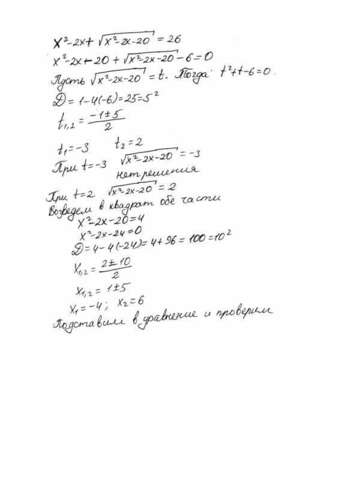 x²-2x+√(x²-2x-20) = 26
x²-2x-20+√(x²-2x-20)-6=0
Пусть √(x²-2x-20) = t. Тогда t²+t-6=0.
D = 1-4(-6)=25=5²
t₁,₂ = (-1±5)/2
t₁=-3 t₂=2
При t=-3 √(x²-2x-20) = -3
нет решения
При t=2 √(x²-2x-20) = 2
Возведем в квадрат обе части
x²-2x-20=4
x²-2x-24=0
D=4-4(-24)=4+96=100=10²
x₁,₂ = (2±10)/2
x₁,₂ = 1±5
x₁=-4; x₂=6
Подставим в уравнение и проверим